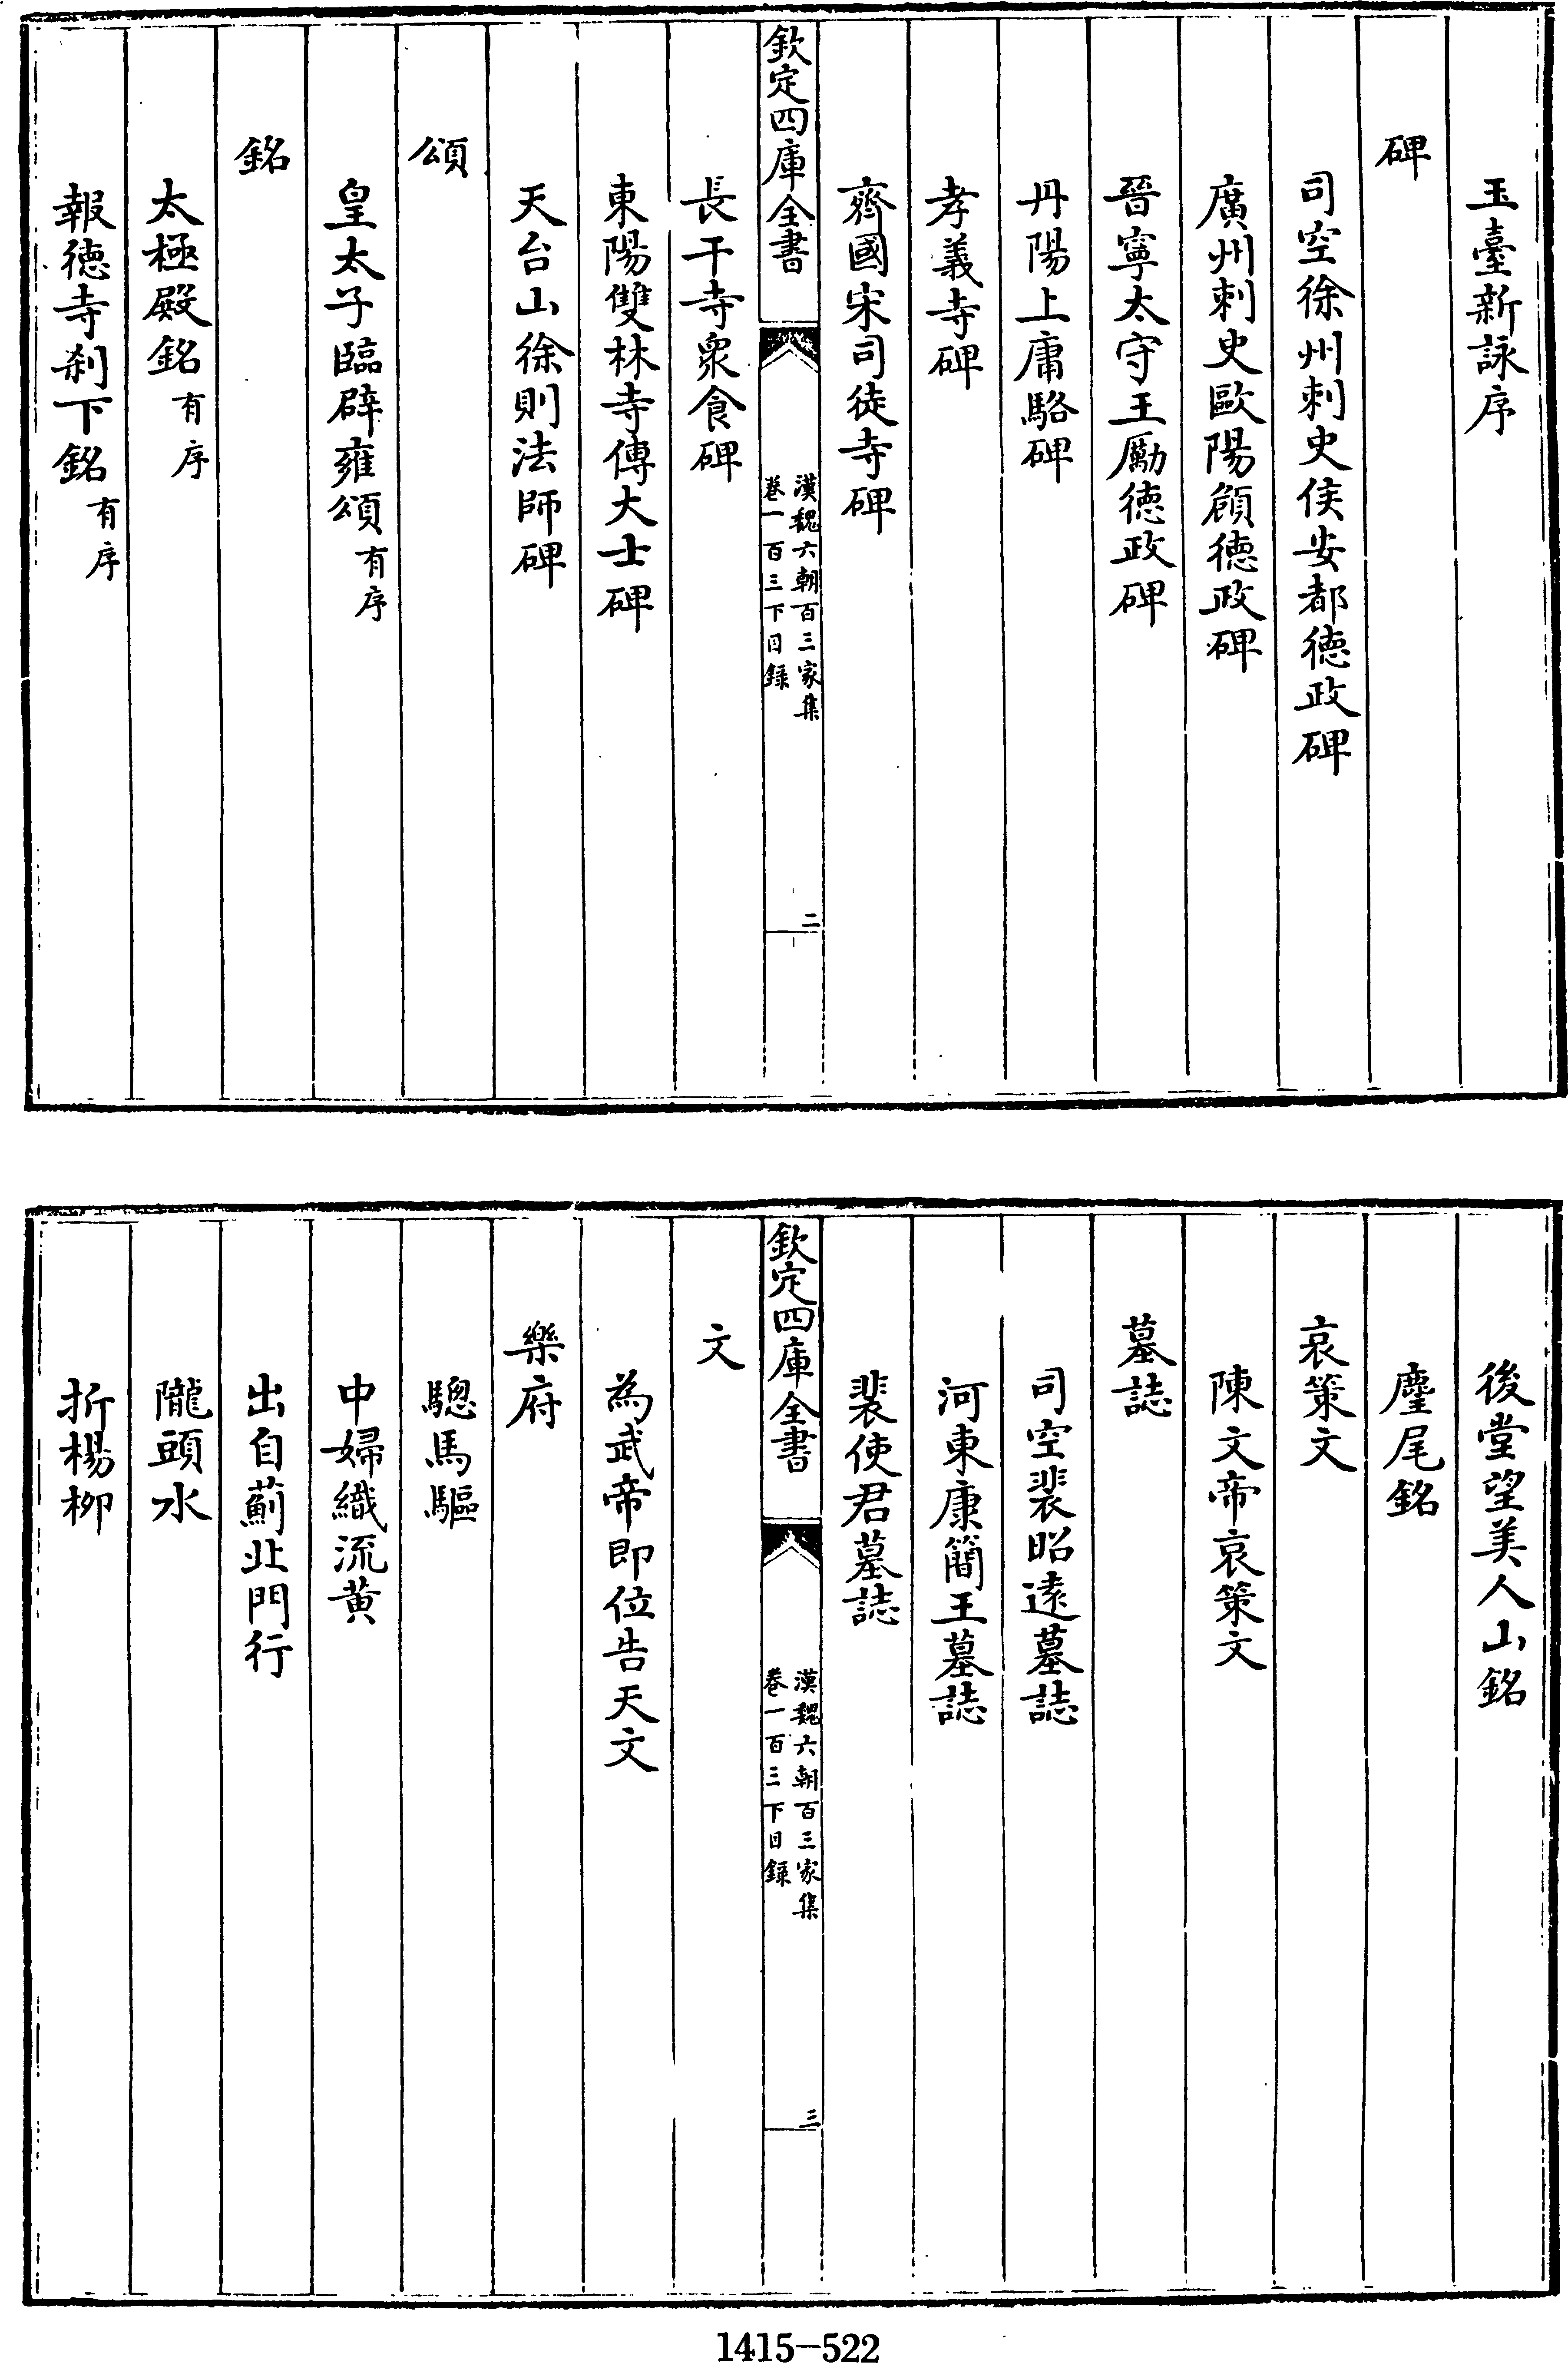 玉臺新詠序
碑
司空徐州刺史侯安都徳政碑
廣州刺史歐陽頠徳政碑
晉寧太守王勵徳政碑
丹陽上庸駱碑
孝義寺碑
齊國宋司徒寺碑
欽定四庫全書
漢魏六朝百三家集
卷一百三下目録
二
長干寺衆食碑
東陽雙林寺傅大士碑
天台山徐則法師碑
頌
皇太子臨辟雍頌有序
銘
太極殿銘有序
報徳寺刹下銘有序
後堂望美人山銘
麈尾銘
哀策文
陳文帝哀策文
墓誌
司空裴昭逺墓誌
河東康簡王墓誌
裴使君墓誌
欽定四庫全書
漢魏六朝百三家集
卷一百三下目録
三
文
為武帝即位告天文
樂府
驄馬驅
中婦織流黄
出自薊北門行
隴頭水
折楊栁
1415-522